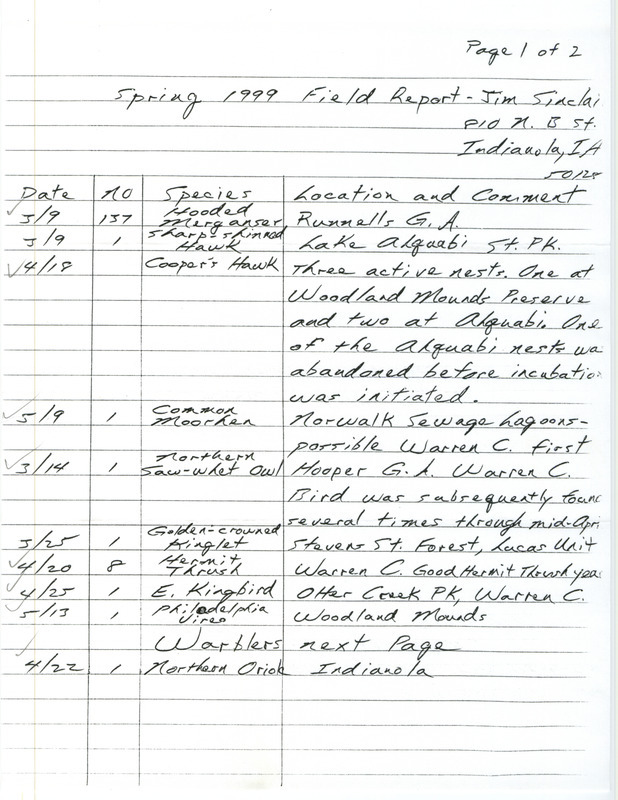 Page 1 of 2
Spring 1999 Field Report - Jim Sinclai
810 N. B St.
Indianola, IA
50125
Date NO Species Location and Comment
3/9 137 Hooded Merganser Runnells G.A.
3/9 1 Sharp-shinned Hawk Lake Ahquabi St. PK.
✓4/18 Cooper's Hawk Three active nests. One at
Woodland Mounds Preserve
and two at Ahquabi. One
of the Ahquabi nests wa
abandoned before incubatio
was initiated.
✓5/9 1 Common Moorhen Norwalk Sewage Lagoons-
possible Warren C. first
✓3/14 1 Northern Saw-whet Owl Hooper G.A. Warren C.
Bird was subsequently foun
several times through mid-Apri
3/25 1 Golden-crowned Kinglet Stevens St. Forest, Lucas Unit
✓4/20 8 Hermit Thrush Warren C. Good Hermit Thrush yea
✓4/25 1 E. Kingbird Otter Creek PK, Warren C.
✓5/13 1 Philadelphia Vireo Woodland Mounds
✓ Warblers next Page
4/22 1 Northern Oriole Indianola